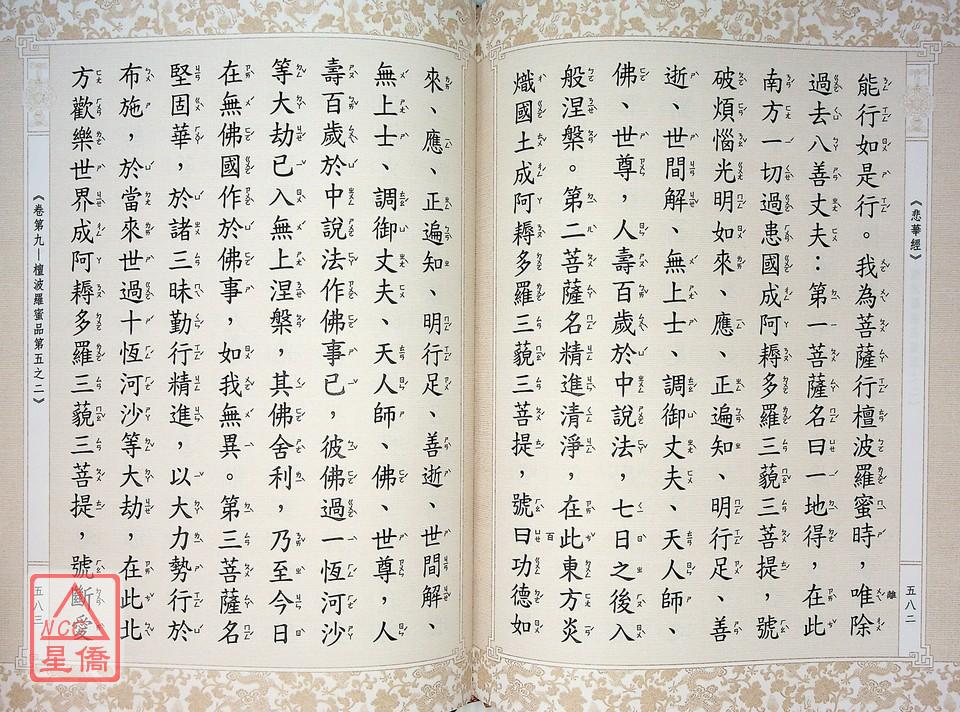 《悲華經》
五八二
能行如是行。我為菩薩行檀波羅蜜時，唯除
離
過去八善丈夫：第一菩薩名曰一地得，在此
南方一切過患國成阿耨多羅三藐三菩提，號
破煩惱光明如來、應、正遍知、明行足、善
逝、世間解、無上士、調御丈夫、天人師、
佛、世尊，人壽百歲於中說法，七日之後入
般涅槃。第二菩薩名精進清淨，在此東方炎
百
熾國土成阿耨多羅三藐三菩提，號曰功德如
來、應、正遍知、明行足、善逝、世間解、
無上士、調御丈夫、天人師、佛、世尊，人
壽百歲於中說法作佛事已，彼佛過一恆河沙
等大劫已入無上涅槃，其佛舍利，乃至今日
在無佛國作於佛事，如我無異。第三菩薩名
堅固華，於諸三昧勤行精進，以大力勢行於
布施，於當來世過十恆河沙等大劫，在此北
方歡樂世界成阿耨多羅三藐三菩提，號斷愛
《卷第九—檀波羅蜜品第五之二》
五八三
NCC
星僑